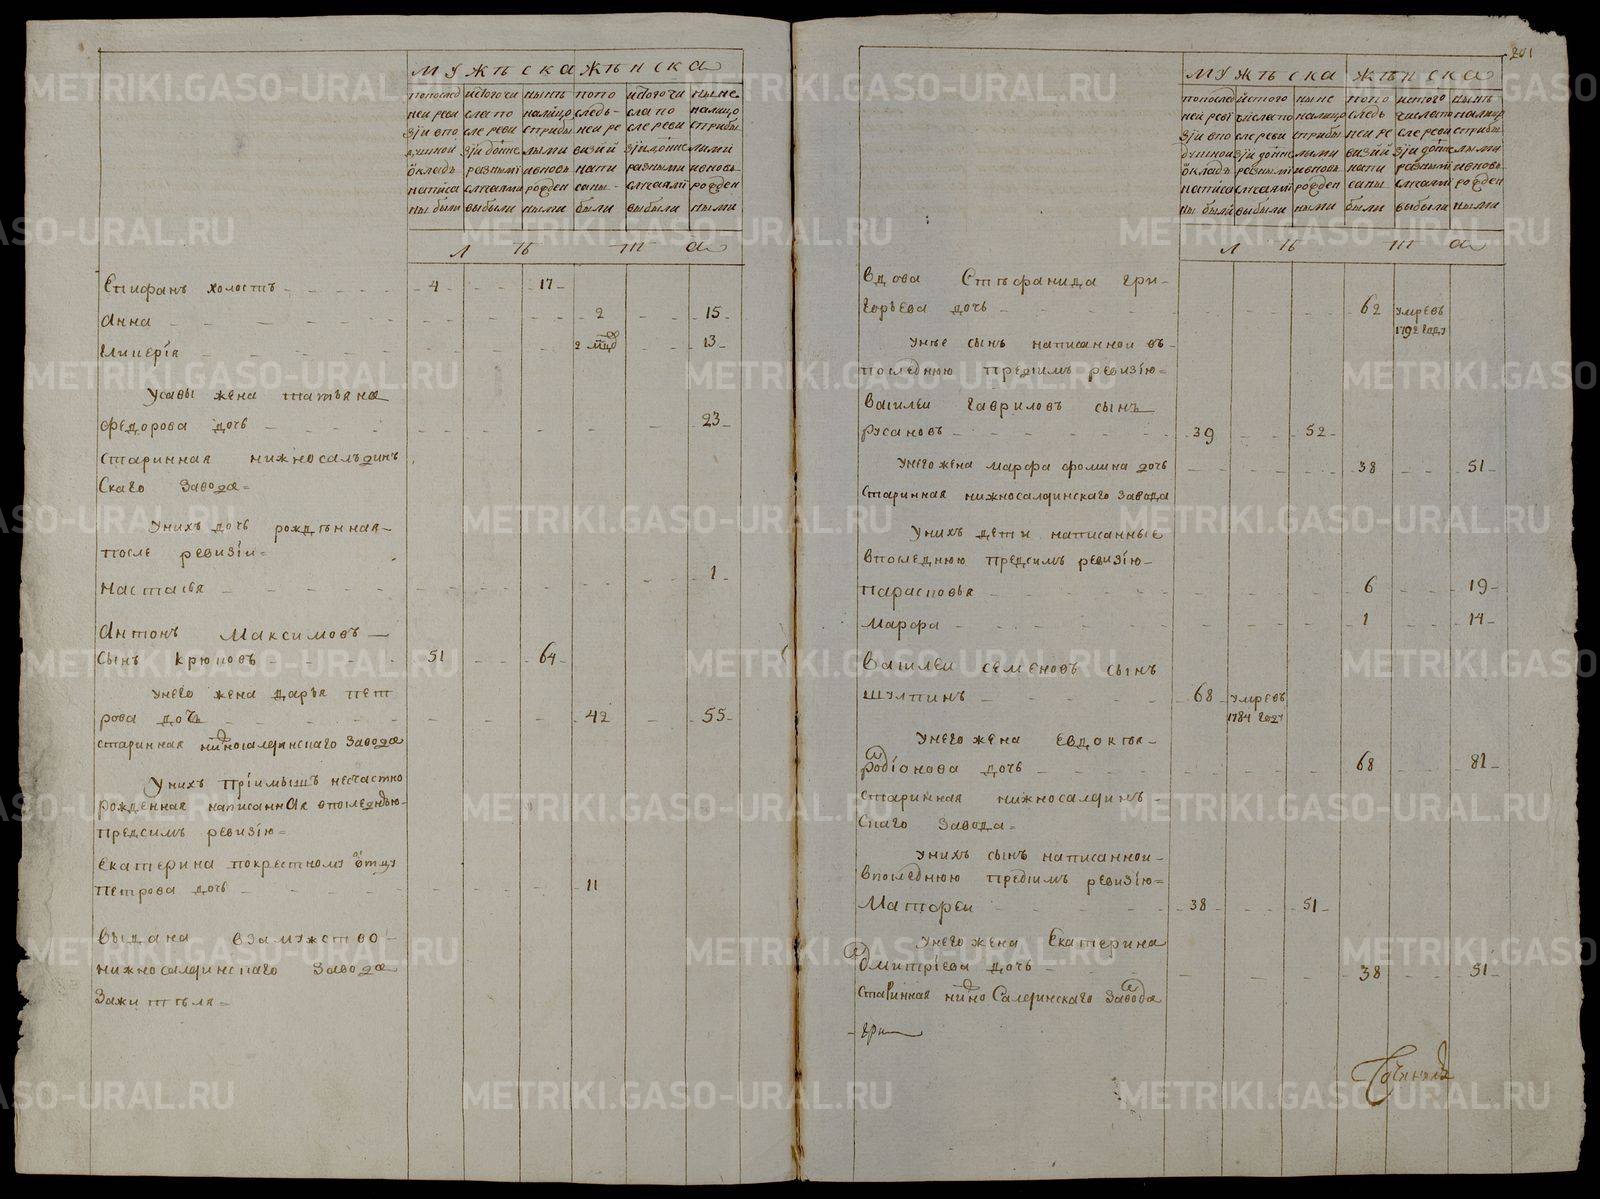 мужеска женска
попослед ней реви зіи впо душной окладъ написа ны были
истого чи сла по сле реви зіи дойне разными случаями выбыли
нынѣ налицо с прибы лыми ивновь рожден ными
попо следь ней ре визіи напи саны были
истого чи сла по сле реви зіи дойне разными случаями выбыли
ныне налицо с прибы лыми ивновь рожден ными
л ѣ т а
Епифанъ холостъ 4 17
Анна 2 15
Гликерія 2 мцд 13
Усавы жена татьяна
федорова дочь 23
старинная нижносалъдинъ
скаго завода =
Унихъ дочь рожденная
после ревизіи =
Настасья 1
Антонъ Максимовъ
сынъ крюковъ 51 64
Унего жена дарья пет
рова дочь 42 55
старинная нижносалдинскаго завода
Унихъ пріимышъ несчастно
рожденная написанная впоследнюю
предсимъ ревизію =
Екатерина покрестному отцу
петрова дочь 11
выдана взамужство
нижносалдинскаго завода
зажителя =
201
мужеска женска
попослед ней реви зіи впо душной окладъ написа ны были
истого числа по сле реви зіи дойне разными случаями выбыли
ныне налицо с прибы лыми ивновь рожден ными
попо следь ней ре визіи напи саны были
истого числа по сле реви зіи дойне разными случаями выбыли
нынѣ налицо с прибы лыми ивновь рожден ными
л ѣ т а
вдова Стефанида гри-
горьева дочь 62 умре въ
1792 году
Унее сынъ написанной въ
последнюю предсимъ ревизію =
Василеи Гавриловъ сынъ
русаковъ 39 52
Унего жена марфа фомина дочь 38 51
старинная нижносалдинскаго завода
Унихъ дети написанные
впоследнюю предсимъ ревизію
парасковья 6 19
марфа 1 14
Василеи семеновъ сынъ
шулпинъ 68 умре въ
1784 году
Унего жена евдокия
родіонова дочь 68 81
старинная нижносалдинъ
скаго завода =
Унихъ сынъ написаннои
впоследнюю предсимъ ревизію =
Матфеи 38 51
Унего жена Екатерина
дмитріева дочь 38 51
старинная нижно Салдинскаго завода
гри